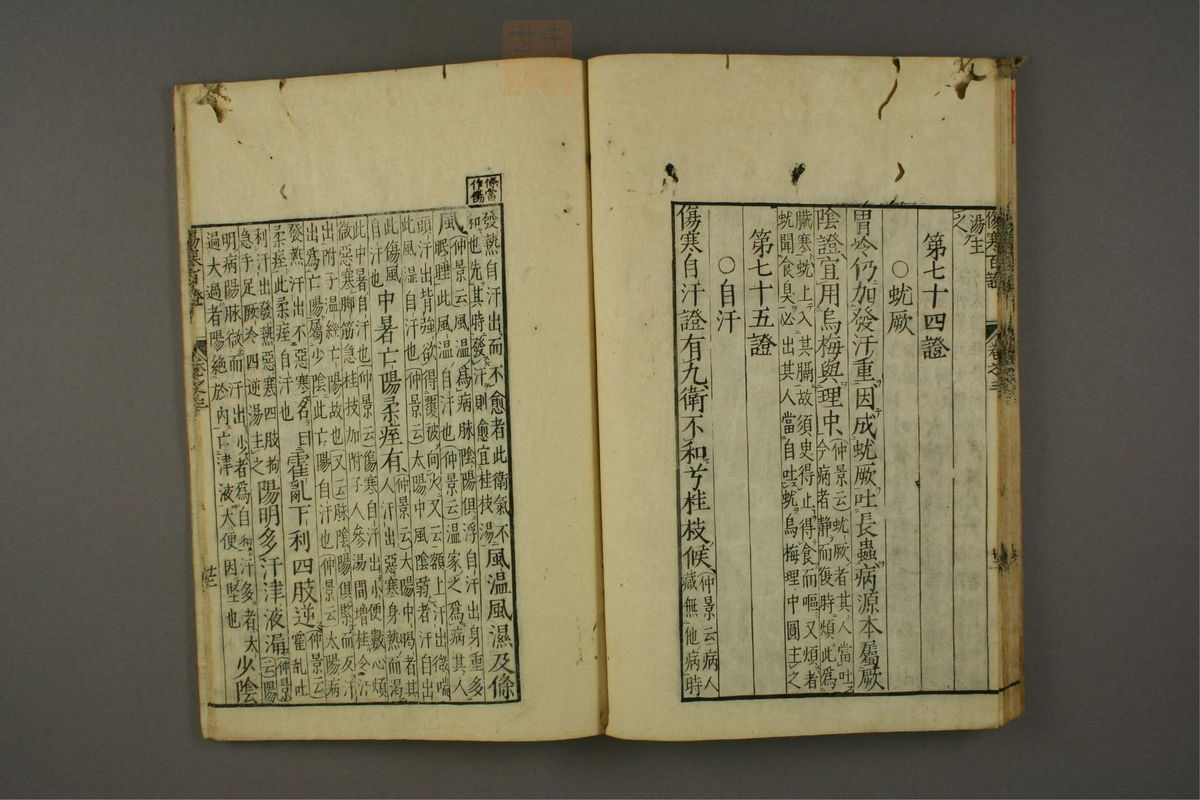 湯主
之
第七十四證
○蚘厥
胃冷仍加發汗重因成蚘厥吐長蟲病源本屬厥
陰證宜用烏梅與理中仲景云蚘厥者其人當吐
今病者靜而復時煩此爲
臟寒蚘上入其膈故須臾得止得食而嘔又煩者
蚘聞食臭必出其人當自吐蚘烏梅理中圓主之
第七十五證
○自汗
傷寒自汗證有九衛不和兮桂枝候仲景云病人
藏無他病時
條當
作傷
發熱自汗出而不愈者此衛氣不
和也先其時發汗則愈宜桂枝湯風溫風濕及條
風仲景云風溫爲病脉陰陽俱浮自汗出身重多
眠睡此風溫自汗也仲景云溫家之爲病其人
頭汗出背強欲得覆被向火又云額上汗出微喘
此風濕自汗也仲景云太陽中風陰弱者汗自出
此傷風
自汗也中暑亡陽柔痓有仲景云太陽中暍者其
人汗出惡寒身熱而渴
此中暑自汗也仲景云傷寒自汗出小便數心煩
微惡寒脚筋急桂枝加附子人參湯間增桂令汗
出附子溫經亡陽故也又云脉陰陽俱緊而反汗
出爲亡陽屬少陰此亡陽自汗也仲景云太陽病
發熱汗出不惡寒名曰
柔痓此柔痓自汗也霍亂下利四肢逆仲景云
霍亂吐
利汗出發熱惡寒四肢拘
急手足厥冷四逆湯主之陽明多汗津液漏仲景
云陽
明病陽脉微而汗出少者爲自和汗多者太
過太過者陽絕於內亡津液大便因堅也少陰
傷寒百證
卷之三